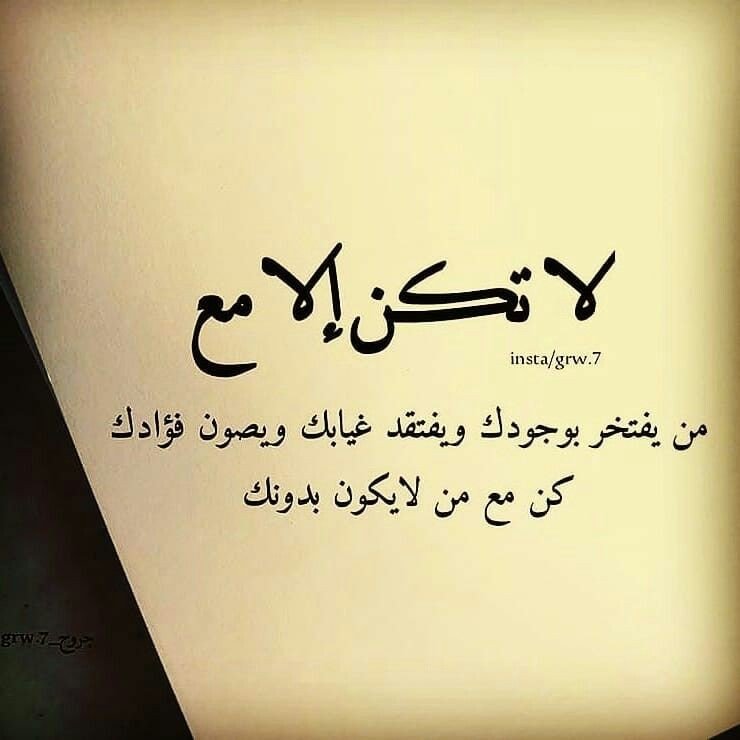 لا تكن إلا مع
insta/grw.7
من يفتخر بوجودك ويفتقد غيابك ويصون فؤادك
كن مع من لايكون بدونك
جروح_grw.7